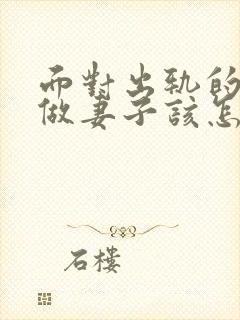 而對出軌的
做妻子該怎
石樓